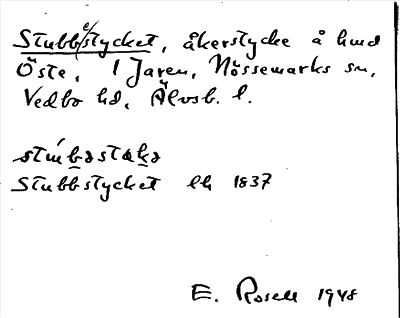 Stubb/e/stycket, åkerstycke å hmd
Öste, 1 Jaren, Nössemarks sn,
Vedbo hd, Älvsb. l.
Stubbstycket lh 1837
E. Rosell 1948